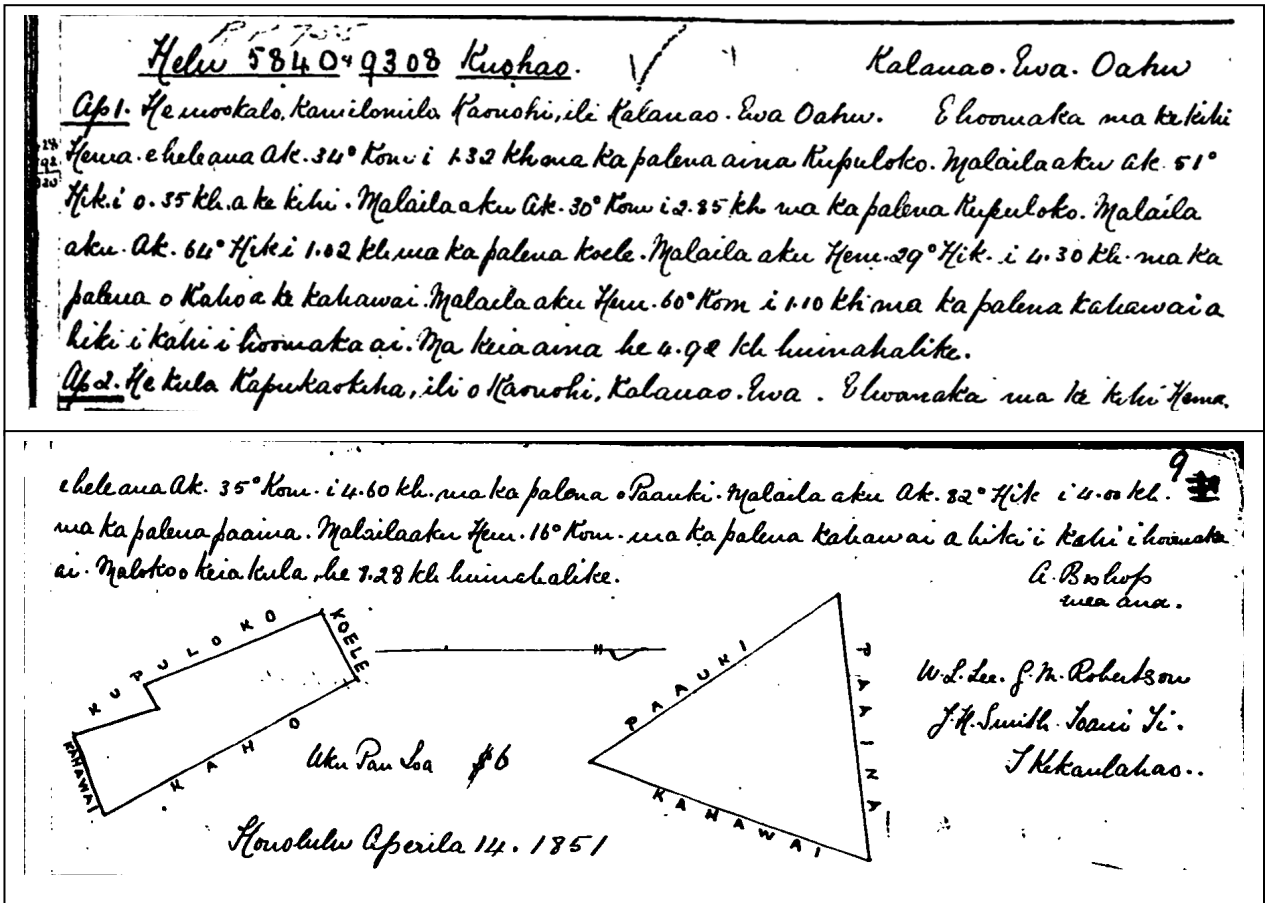 Helu 5840 & 9308 Kuohao. Kalauao. Ewa. Oahu
Ap 1. He mookalo, Kamilomilo Kaonohi, ili Kalauao. Ewa Oahu. E hoomaka ma ke kihi
Hema. e hele ana Ak. 34° Kom i 1.32 kh ma ka palena aina Kupuloko. Malaila aku Ak. 51°
Hik. i 0.35 kh. a ke kihi. Malaila aku Ak. 30° Kom i 2.85 kh ma ka palena Kupuloko. Malaila
aku. Ak. 64° Hik i 1.02 kh ma ka palena koele. Malaila aku Hem. 29° Hik. i 4.30 kh. ma ka
palena o Kaho a ke kahawai. Malaila aku Hem. 60° Kom i 1.10 kh ma ka palena kahawai a
hiki i kahi i hoomaka ai. Ma keia aina he 4.92 kh huinahalike.
Ap 2. He kula Kapukaokiha, ili o Kaonohi, Kalauao. Ewa. E hoomaka ma ke kihi Hema.
e hele ana Ak. 35° Kom. i 4.60 kh. ma ka palena o Paauki. Malaila aku Ak. 82° Hik i 4.00 kh.
9
ma ka palena paaina. Malaila aku Hem. 16° Kom. ma ka palena kahawai a hiki i kahi i hoomaka
ai. Maloko o keia kula, he 8.28 kh huinahalike.
A. Bishop
mea ana.
KUPULOKO
KOELE
KAHO
KAHAWAI
N
PAAUKI
PAAINA
KAHAWAI
W. L. Lee. G. M. Robertson
J. H. Smith. Ioane Ii.
S Kekaulahao..
Uku Pau Loa $6
Honolulu Aperila 14. 1851